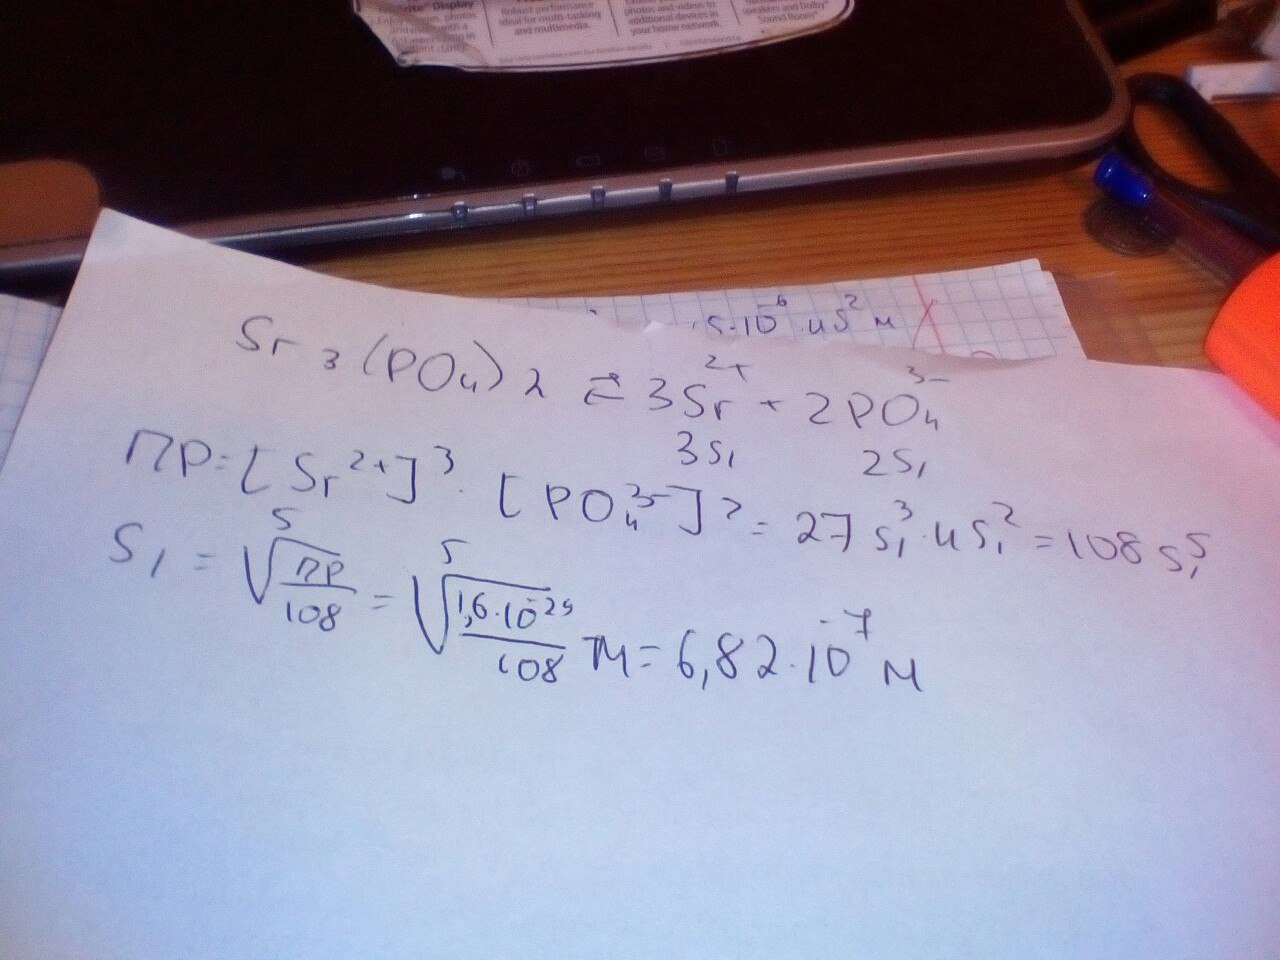 photos
Robust performance
ideal for multi-tasking
and multimedia.
photos and videos to
additional devices in
your home network.
speakers and Dolby®
Sound Room™
5·10⁻⁶·4S² M
Sr₃(PO₄)₂ ⇄ 3Sr²⁺ + 2PO₄³⁻
3S₁ 2S₁
ПР=[Sr²⁺]³·[PO₄³⁻]²=27S₁³·4S₁²=108S₁⁵
S₁=⁵√(ПР/108)=⁵√(1,6·10⁻²⁵/108) M=6,82·10⁻⁷ M